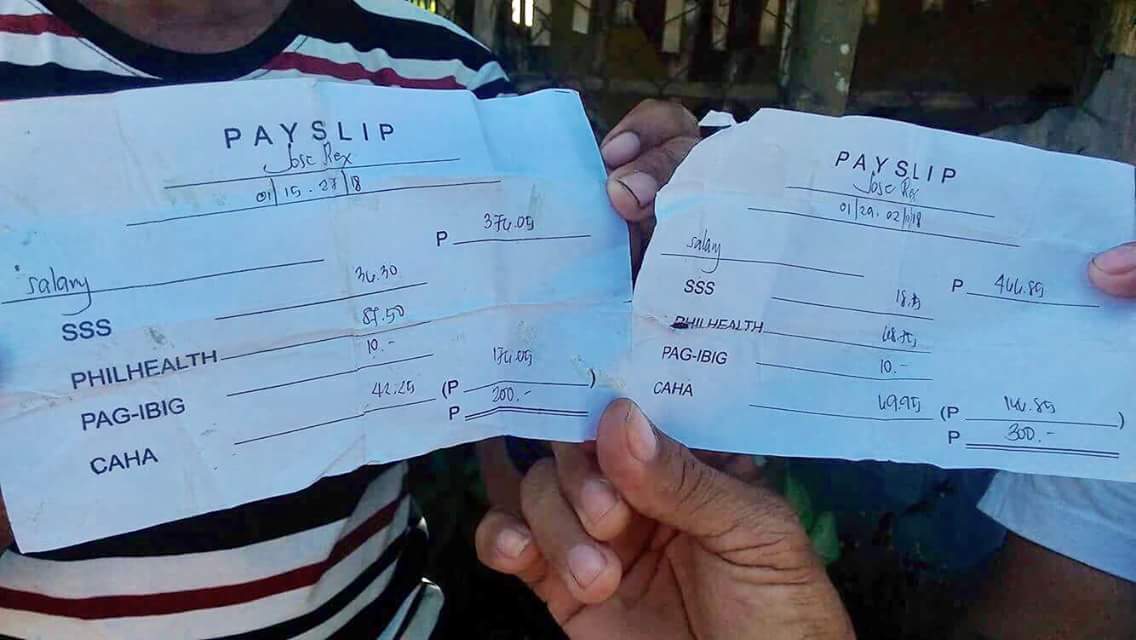 PAYSLIP
Jose Rex
01/15-27/18
salary P 376.05
SSS 36.30
PHILHEALTH 87.50
PAG-IBIG 10.- (P 176.05)
CAHA 42.25 P 200.-
PAYSLIP
Jose Rex
01/29-02/10/18
salary P 446.85
SSS 18.15
PHILHEALTH 48.75
PAG-IBIG 10.-
CAHA 69.95 (P 146.85)
P 300.-